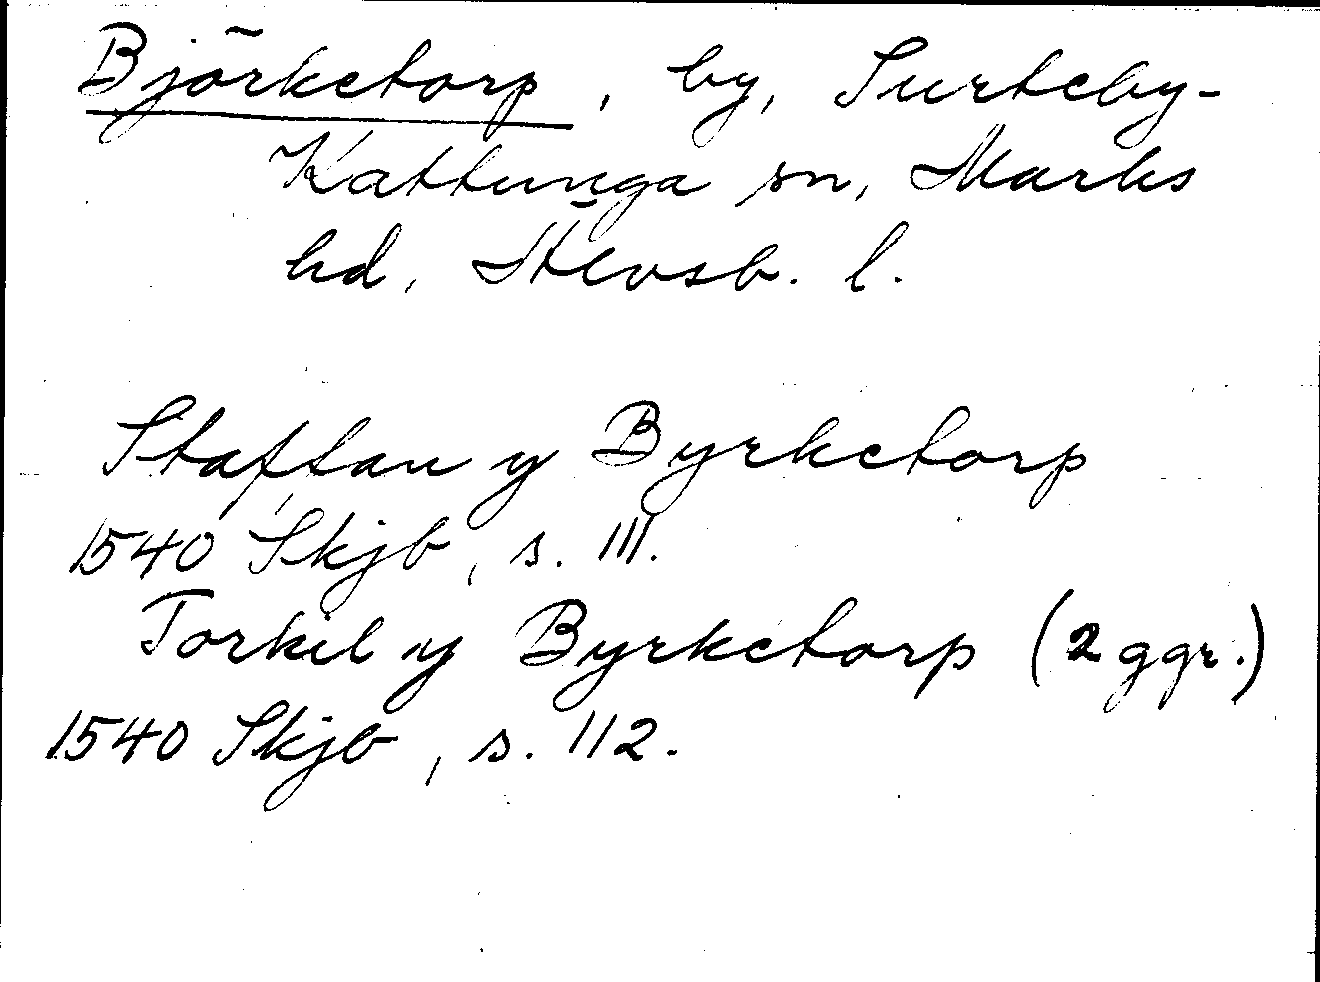 Björketorp, by, Surteby-
Kattunga sn, Marks
hd, Älvsb. l.
Staffan y Byrketorp
1540 Skjb, s. 111.
Torkil y Byrketorp (2 ggr.)
1540 Skjb, s. 112.